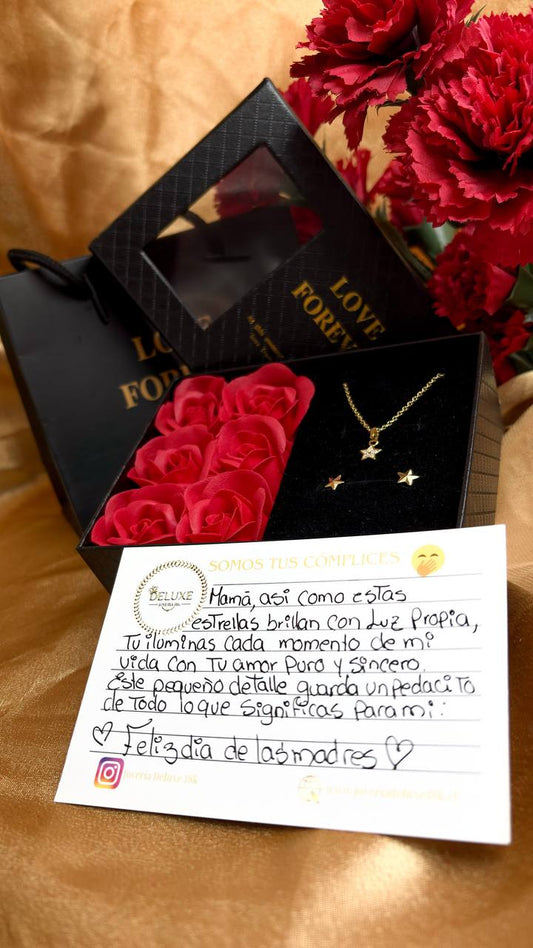 LOVE
FOREVER
SOMOS TUS CÓMPLICES
DELUXE
Mamá, así como estas
estrellas brillan con Luz Propia,
Tu iluminas cada momento de mi
vida con Tu amor Puro y sincero.
Este pequeño detalle guarda un pedacito
de Todo lo que significas Para mi:
Feliz dia de las madres
Joyería Deluxe 18k